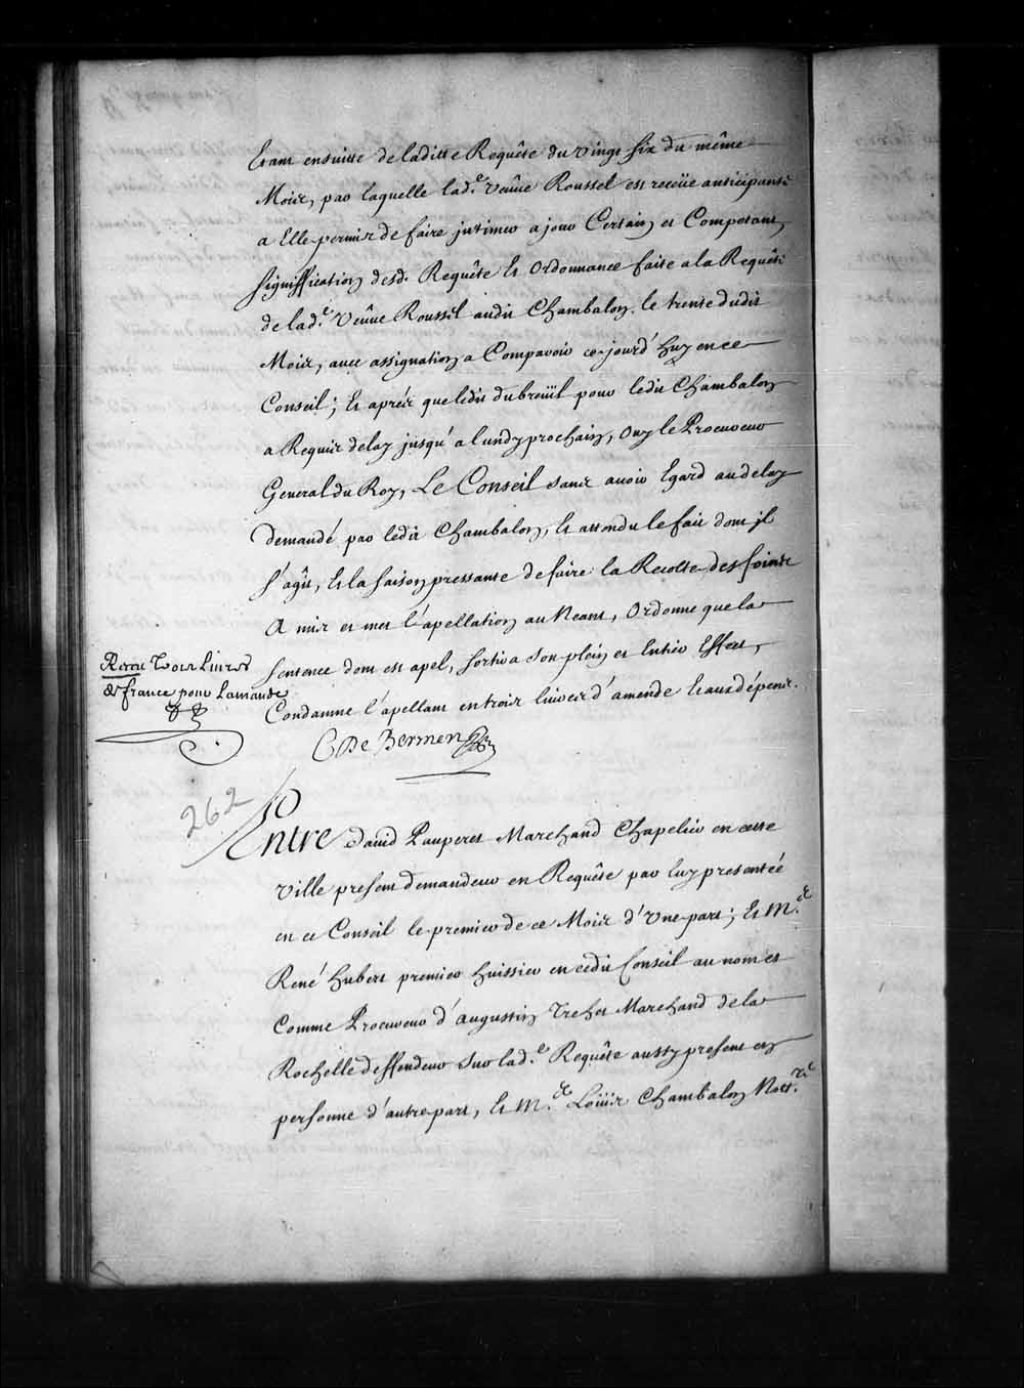 Etant ensuitte de laditte Requête du vingt six du même
Mois, par laquelle lad.e Veûve Roussel est receüe anticipante
a Elle permis de faire jntimer a jour Certain et Competant,
signiffication desd. Requête et Ordonnance faite a la Requête
de lad.e Veûve Roussel audit Chambalon le trente dudit
Mois, avec assignation a Comparoir ce jourd'huy en ce
Conseil; Et aprés que ledit dubreüil pour ledit Chambalon
a Requis delay jusqu'a lundy prochain, Ouy le Procureur
General du Roy, Le Conseil sans avoir Egard au delay
demandé par ledit Chambalon, Et attendu le fait dont jl
s'agit, Et la saison pressante de faire la Recolte des foins
A mis et met l'apellation au Neant, Ordonne que la
Sentence dont est apel, sortira son plein et Entier Effect,
Condamne l'apellant en trois livres d'amende Et aux dépens.
Receu trois Livres
de france pour Lamande
C De Bermen
262
Entre David Pauperet Marchand Chapelier en cette
Ville present demandeur en Requête par luy presentée
en ce Conseil le premier de ce Mois d'Vne part; Et M.e
René Hubert premier huissier en cedit Conseil au nom et
Comme Procureur d'Augustin Trehet Marchand de la
Rochelle deffendeur sur lad.e Requête aussy present en
personne d'autre part, Et M.e Loüis Chambalon Nott.re